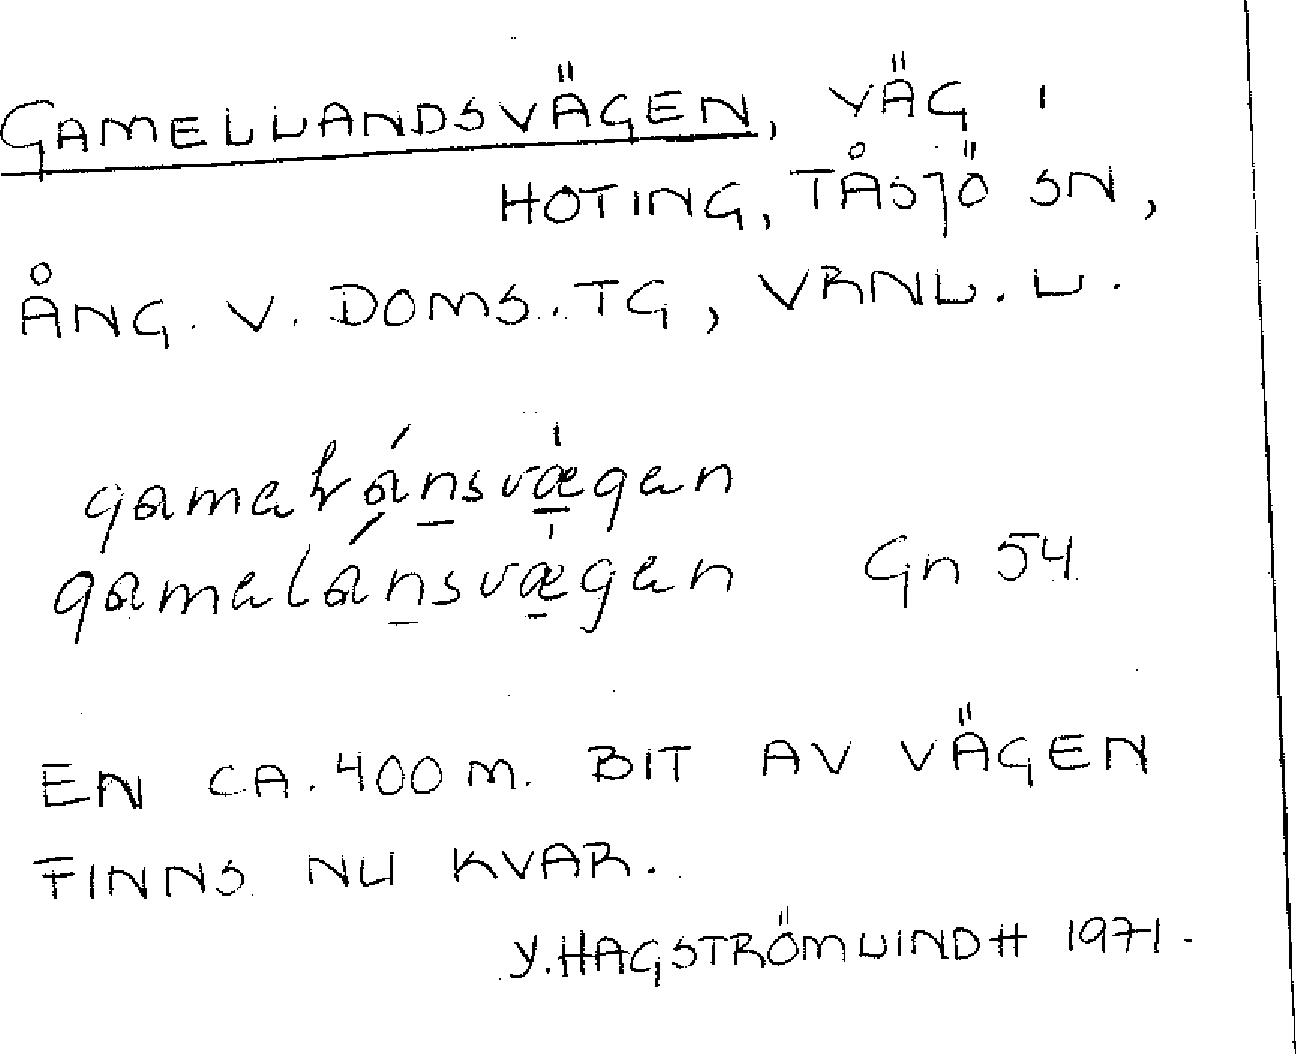 GAMELLANDSVÄGEN, VÄG I
HOTING, TÅSJÖ SN,
ÅNG. V. DOMS. TG, VRNL. L.
gamalánsvægen
gamalánsvægen Gn 54
EN CA. 400 M. BIT AV VÄGEN
FINNS NU KVAR.
Y. HAGSTRÖMLINDH 1971.